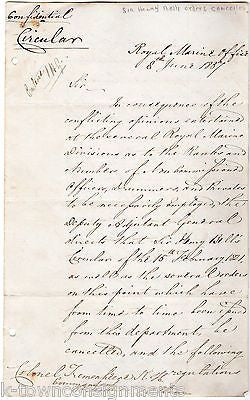 Sir Henry Bell's orders cancelled
Confidential
Circular
Royal Marine Office
8th June 1857
Sir
In consequence of the
conflicting opinions entertained
at the several Royal Marine
Divisions as to the Ranks and
Numbers of Non-commissioned
Officers, Drummers, and Privates
to be necessarily employed, the
Deputy Adjutant General
directs that Sir Henry Bell's
Circular of the 15th February
as well as the several orders
on this point which have
from time to time been issued
from this department be
cancelled, and the following
Colonel K.H. regulations
k-townconsignments